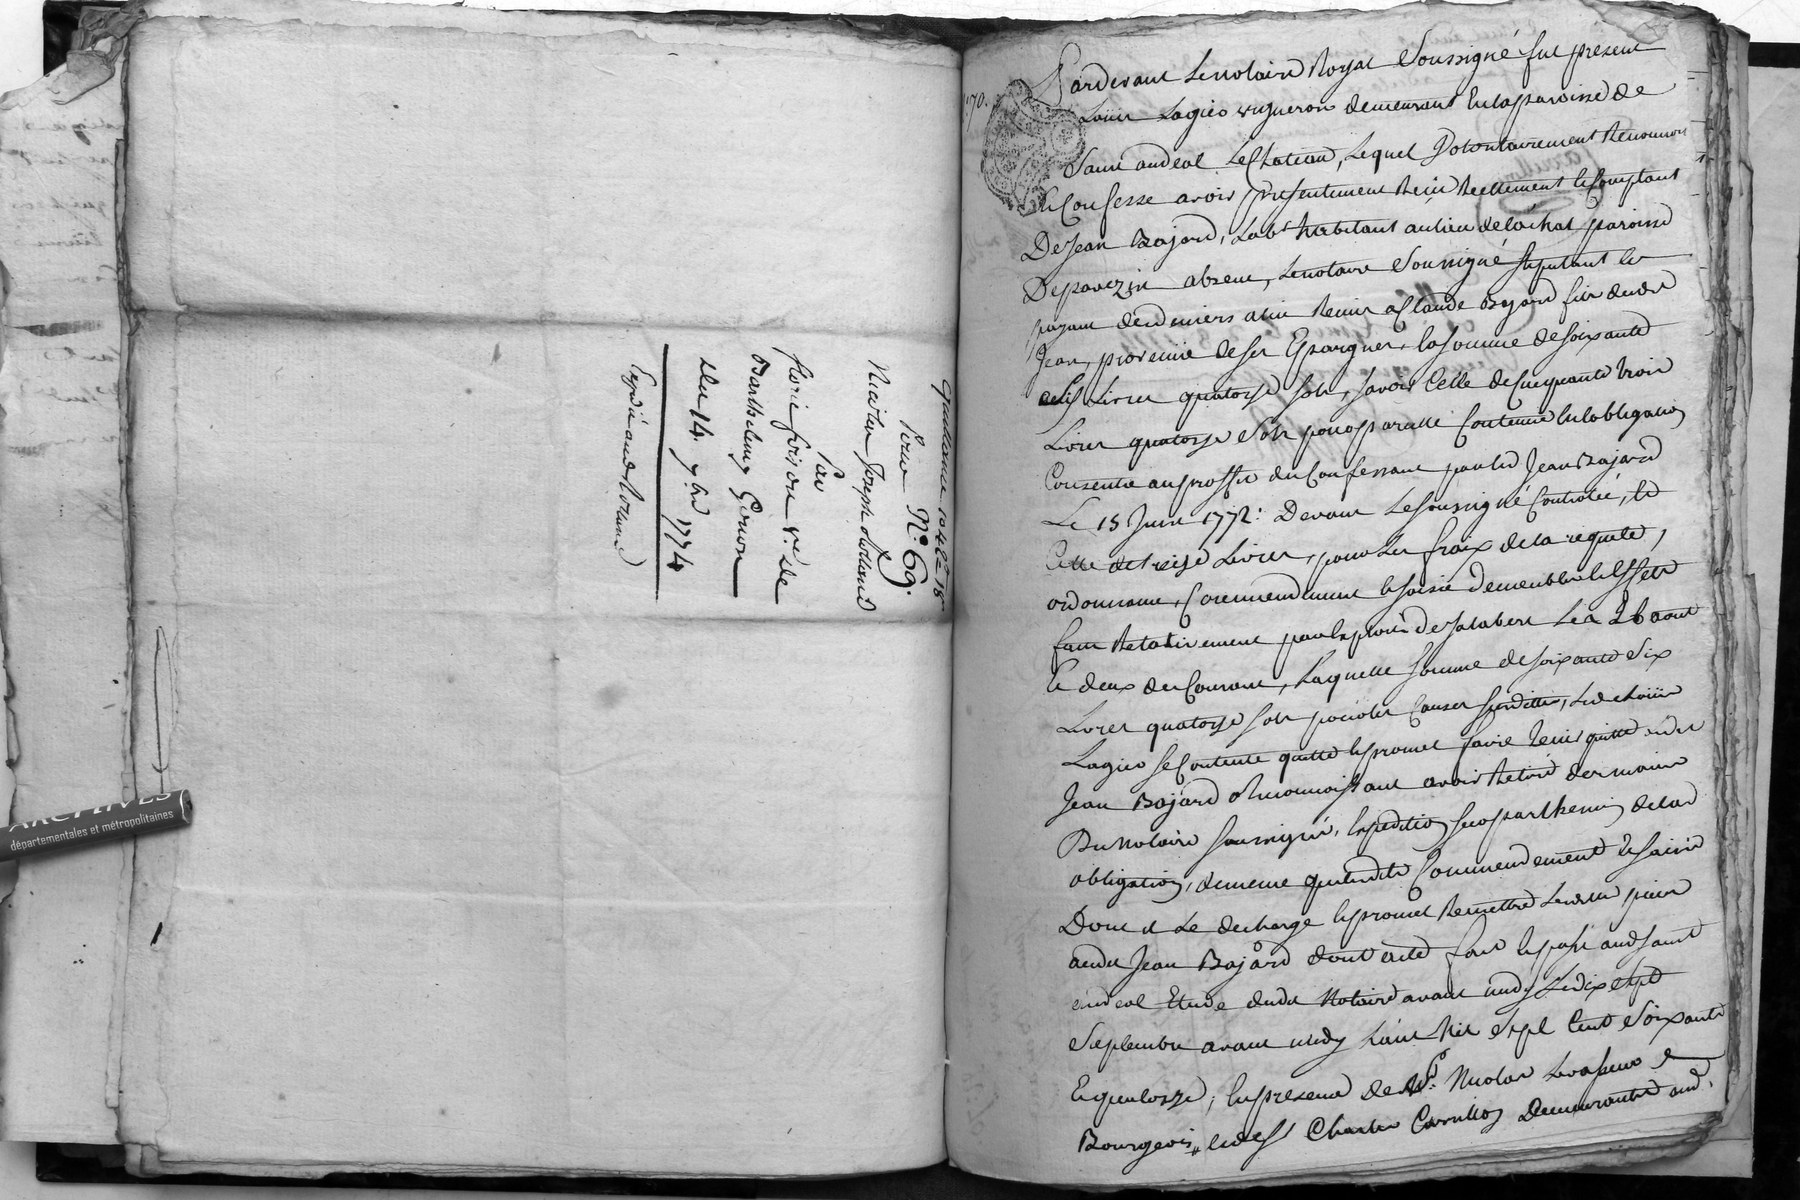 Quittance 104lt 18s
Pour N.º 69.
Nicolas Joseph Rolland
Par
florie frison v.e de
Barthelemy Goujon
du 14. 7bre 1774
Expédié aud Rolland
ARCHIVES
départementales et métropolitaines
70.
Pardevant Le notaire Royal Soussigné fut présent
Loüis Lagier vigneron demeurant En la parroisse de
Saint andeol Le Chateau, Lequel Volontairement Reconnoit
Et Confesse avoir présentement Reçu Reellement Et Comptant
De Jean Bajard, Labr habitant au lieu de la chat parroisse
De pavezin absent, Le notaire Soussigné stipulant Et
payant des deniers a lui Remis Claude Bajard fils dudit
Jean, provenüe de ses Epargnes, la somme de soixante
six Livres quatorze sols, savoir Celle de Cinquante trois
Livres quatorze Sols pour Contenue En l'obligation
Consentie au proffit du Confessant par led Jean Bajard
Le 15 Juin 1772: Devant Le soussigné Controlée, Et
Celle de treize Livres, pour Les fraix de la requete,
ordonnance, Commendement Et saisie de meubles Et Effets
faits Relativement par Exploits de Jalabert Les 26 aout
Et deux du Courant, Laquelle somme de soixante Six
Livres quatorze sols pour les Causes susdittes, Led Loüis
Lagier se Contente quitte Et promet faire tenir quitte ledit
Jean Bajard reconnoissant avoir Retiré des mains
Du Notaire soussigné, Expedition En parchemin de lad
obligation, de meme que lesdits Commendement Et saisie
Dont il Le decharge Et promet Remettre Lesdites pieces
audit Jean Bajard dont acte fait Et passé aud saint
andeol Etude dudit Notaire avant midy Le dix Sept
Septembre avant midy L'an Mil Sept Cent Soixante
Et quatorze, En presence de Sr. Nicolas Levasseur
Bourgeois, Et de Sr Charles Carrillon Demeurants aud.